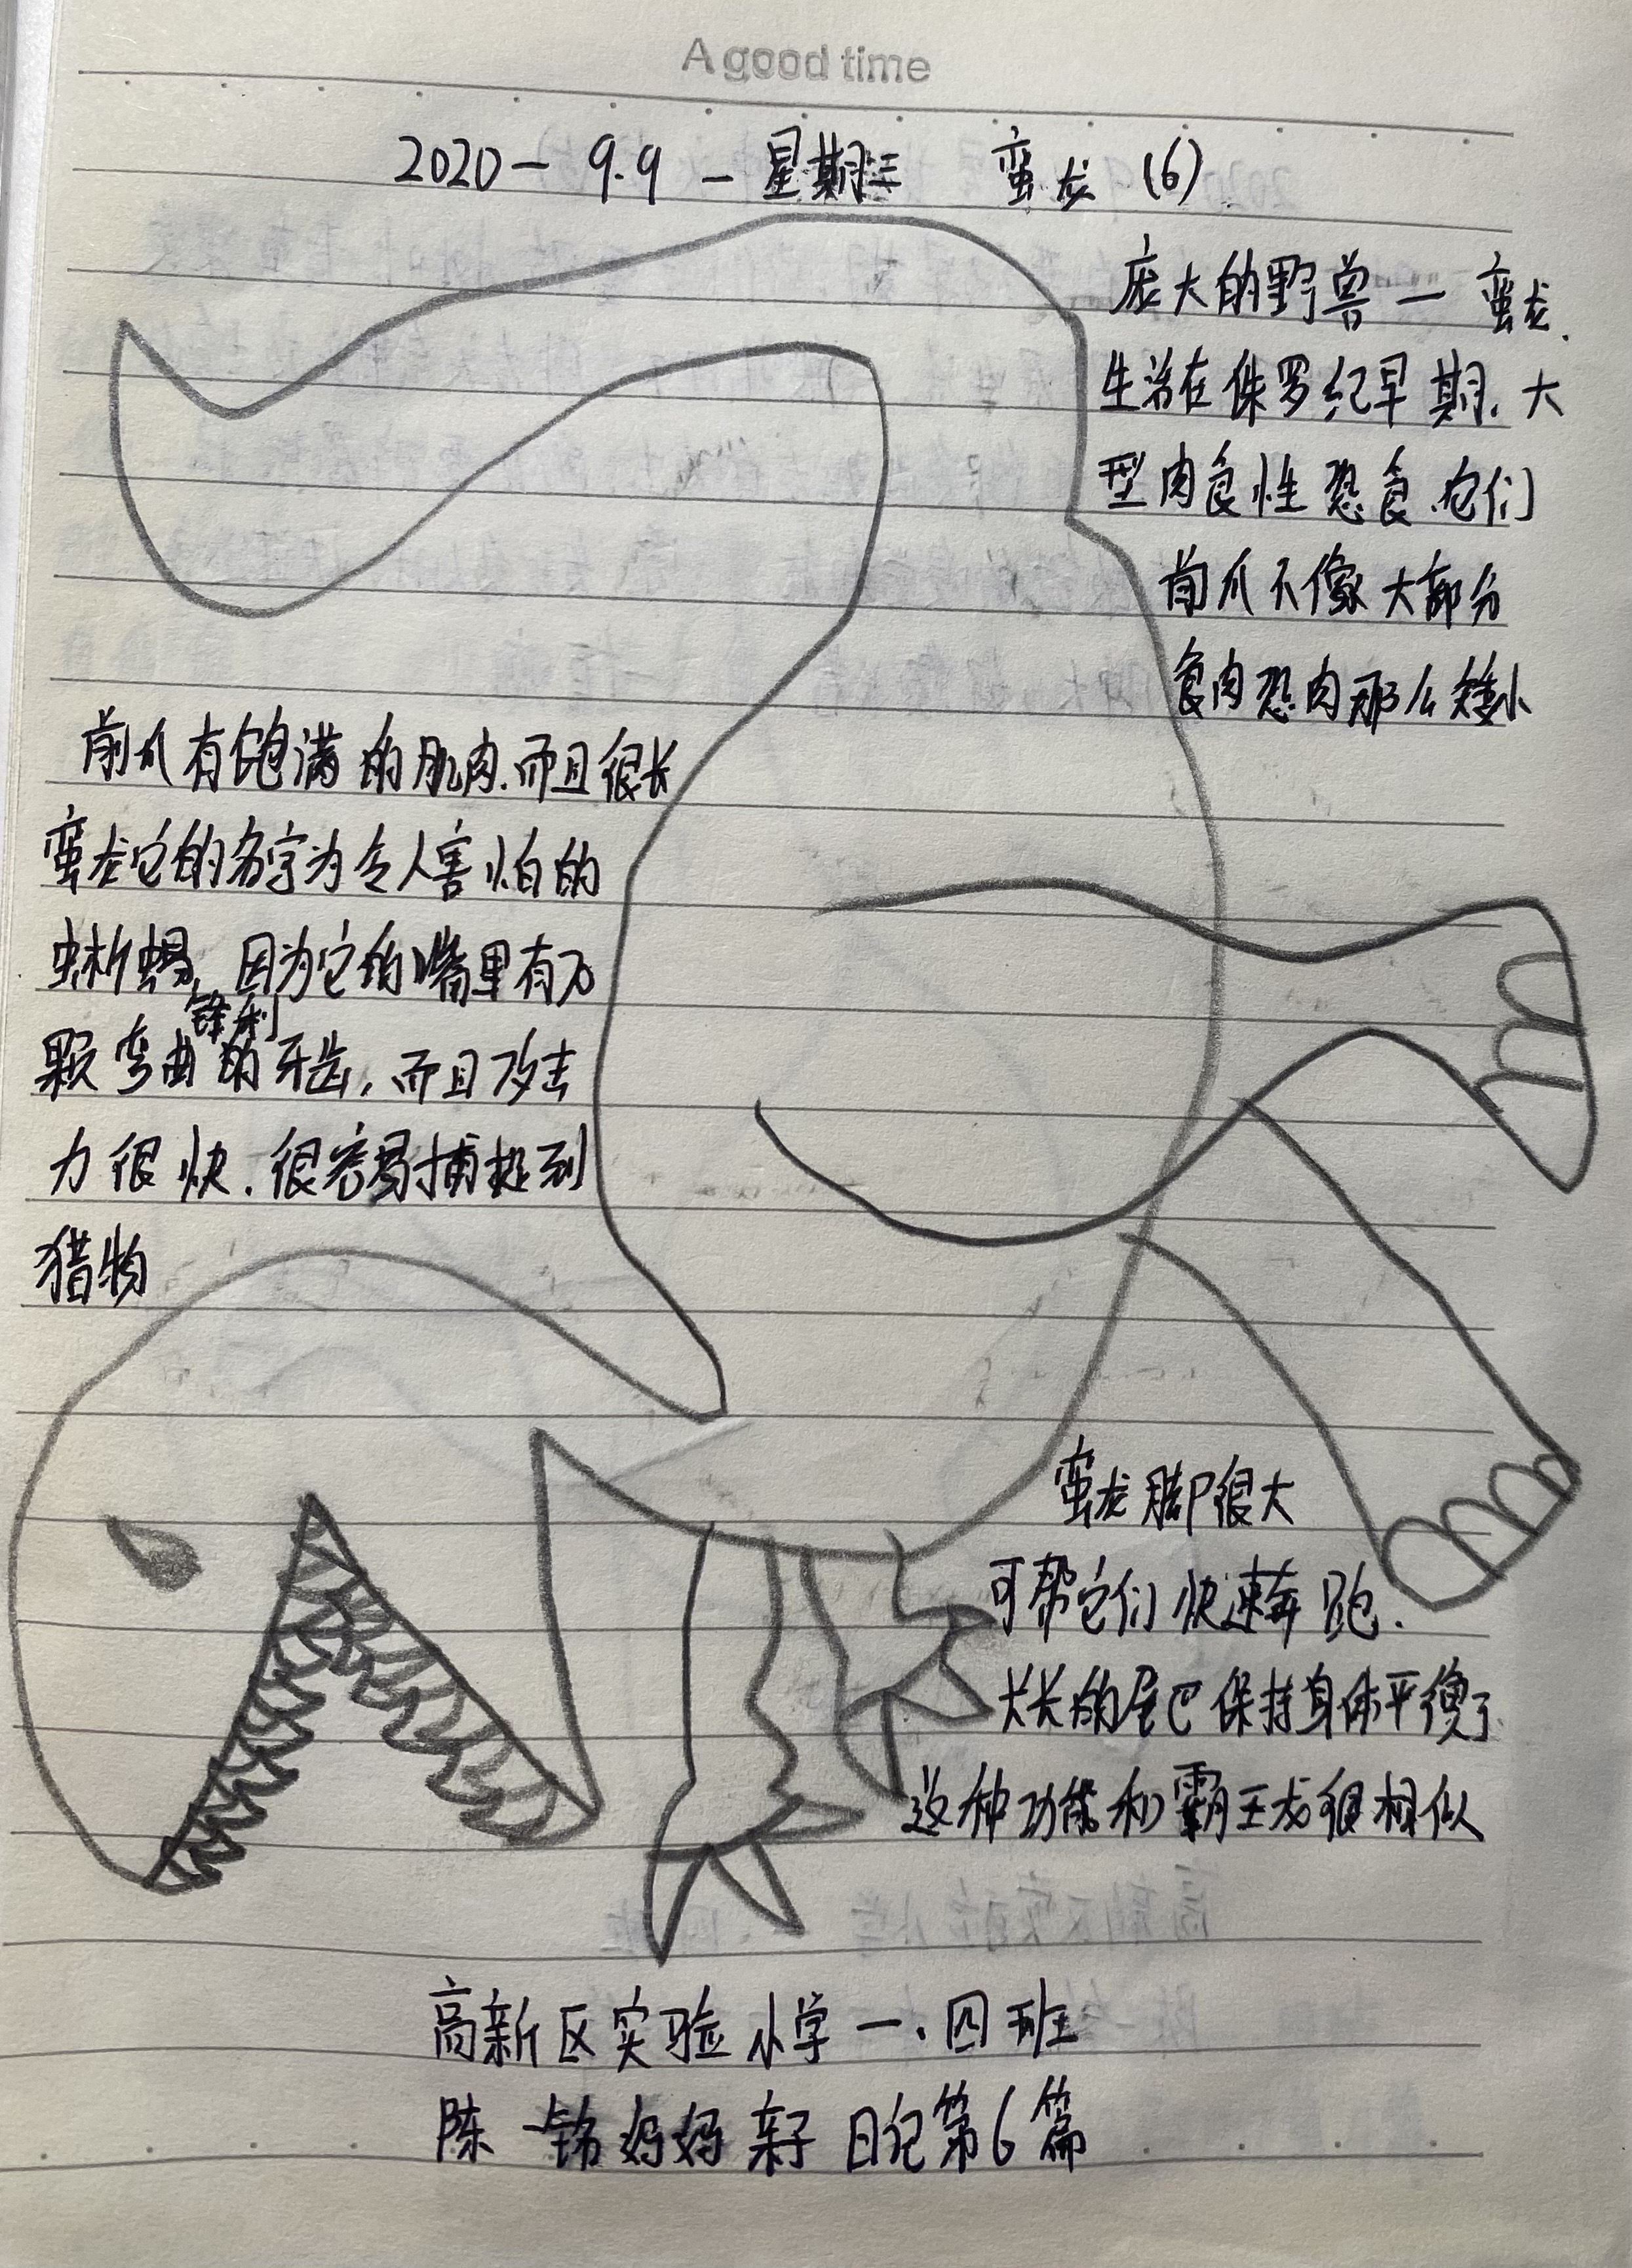 A good time
2020-9.9-星期三 蛮龙(6)
庞大的野兽一蛮龙.
生活在侏罗纪早期.大
型肉食性恐食.它们
前爪不像大部分
食肉恐肉那么矮小
前爪有饱满的肌肉.而且很长
蛮龙它的名字为令人害怕的
蜥蜴,因为它的嘴里有万
锋利
颗弯曲的牙齿,而且攻击
力很快.很容易捕捉到
猎物
蛮龙脚很大
可帮它们快速奔跑.
大长的尾巴保持身体平衡了
这种功能和霸王龙很相似
高新区实验小学一.四班
陈一铭妈妈亲子日记第6篇